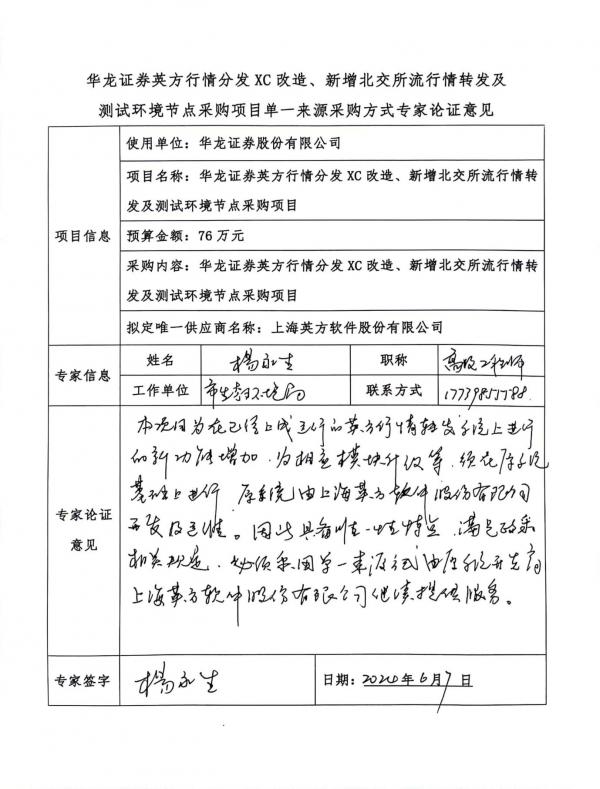 华龙证券英方行情分发 XC 改造、新增北交所流行情转发及
测试环境节点采购项目单一来源采购方式专家论证意见
项目信息
使用单位：华龙证券股份有限公司
项目名称：华龙证券英方行情分发 XC 改造、新增北交所流行情转
发及测试环境节点采购项目
预算金额：76 万元
采购内容：华龙证券英方行情分发 XC 改造、新增北交所流行情转
发及测试环境节点采购项目
拟定唯一供应商名称：上海英方软件股份有限公司
专家信息
姓名
杨永生
职称
高级工程师
工作单位
市生态环境局
联系方式
专家论证
意见
本项目为在已经上线运行的英方行情转发系统上进行
的新功能增加，为相应模块升级等，须在原系统
基础上进行，原系统由上海英方软件股份有限公司
开发及运维。因此具有唯一性特点，满足政采
相关规定，必须采用单一来源方式由原系统开发商
上海英方软件股份有限公司继续提供服务。
专家签字
杨永生
日期：2024年6月7日